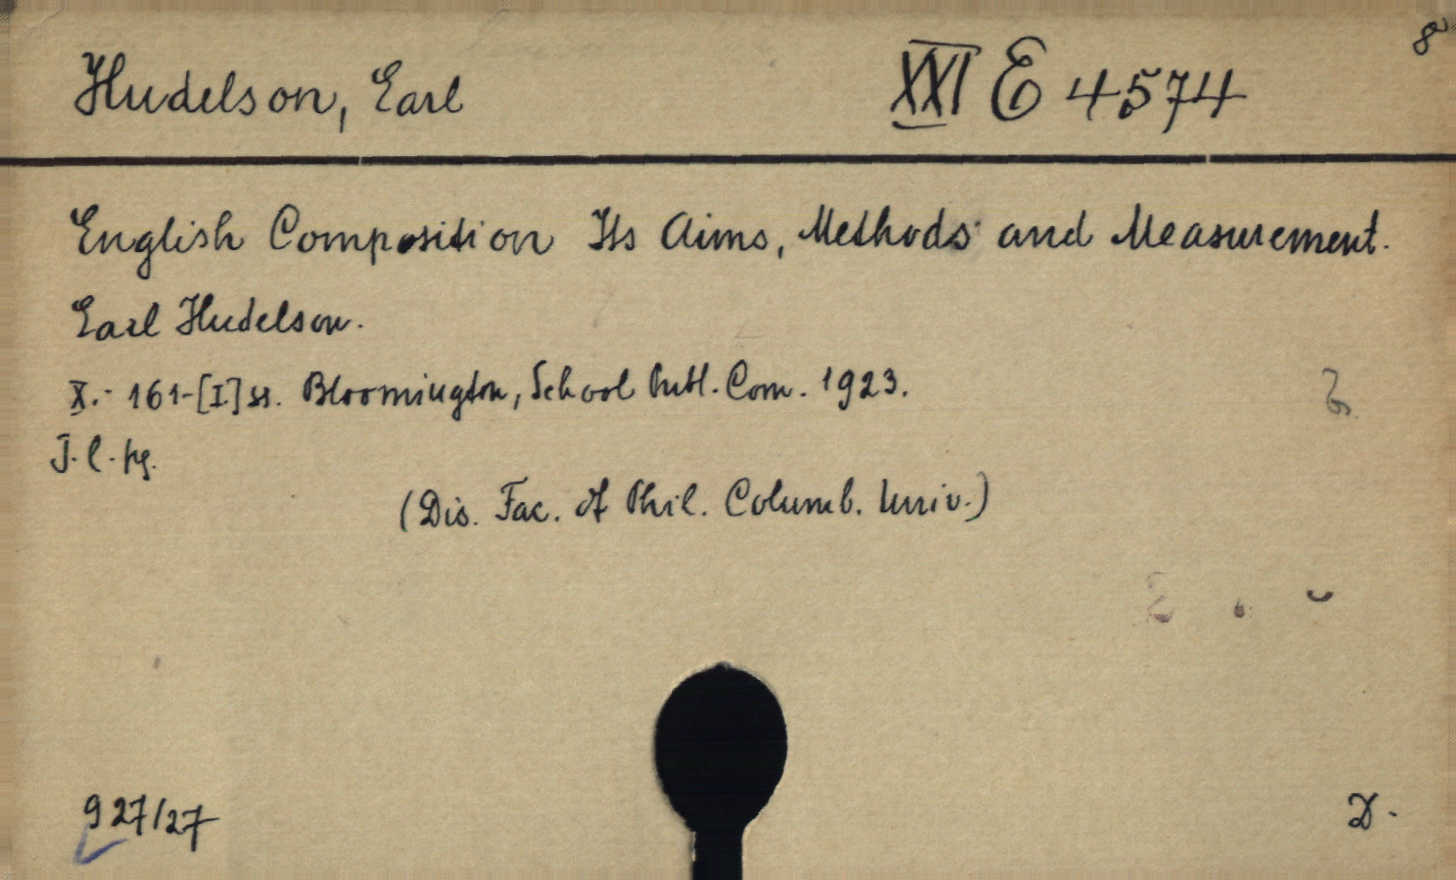 8
Hudelson, Earl XXI E 4574
English Composition Its Aims, Methods and Measurement.
Earl Hudelson.
X.- 161-[I] ss. Bloomington, School Publ. Com. 1923.
J. l. pg.
(Dis. Fac. of Phil. Columb. Univ.)
927/27
D.